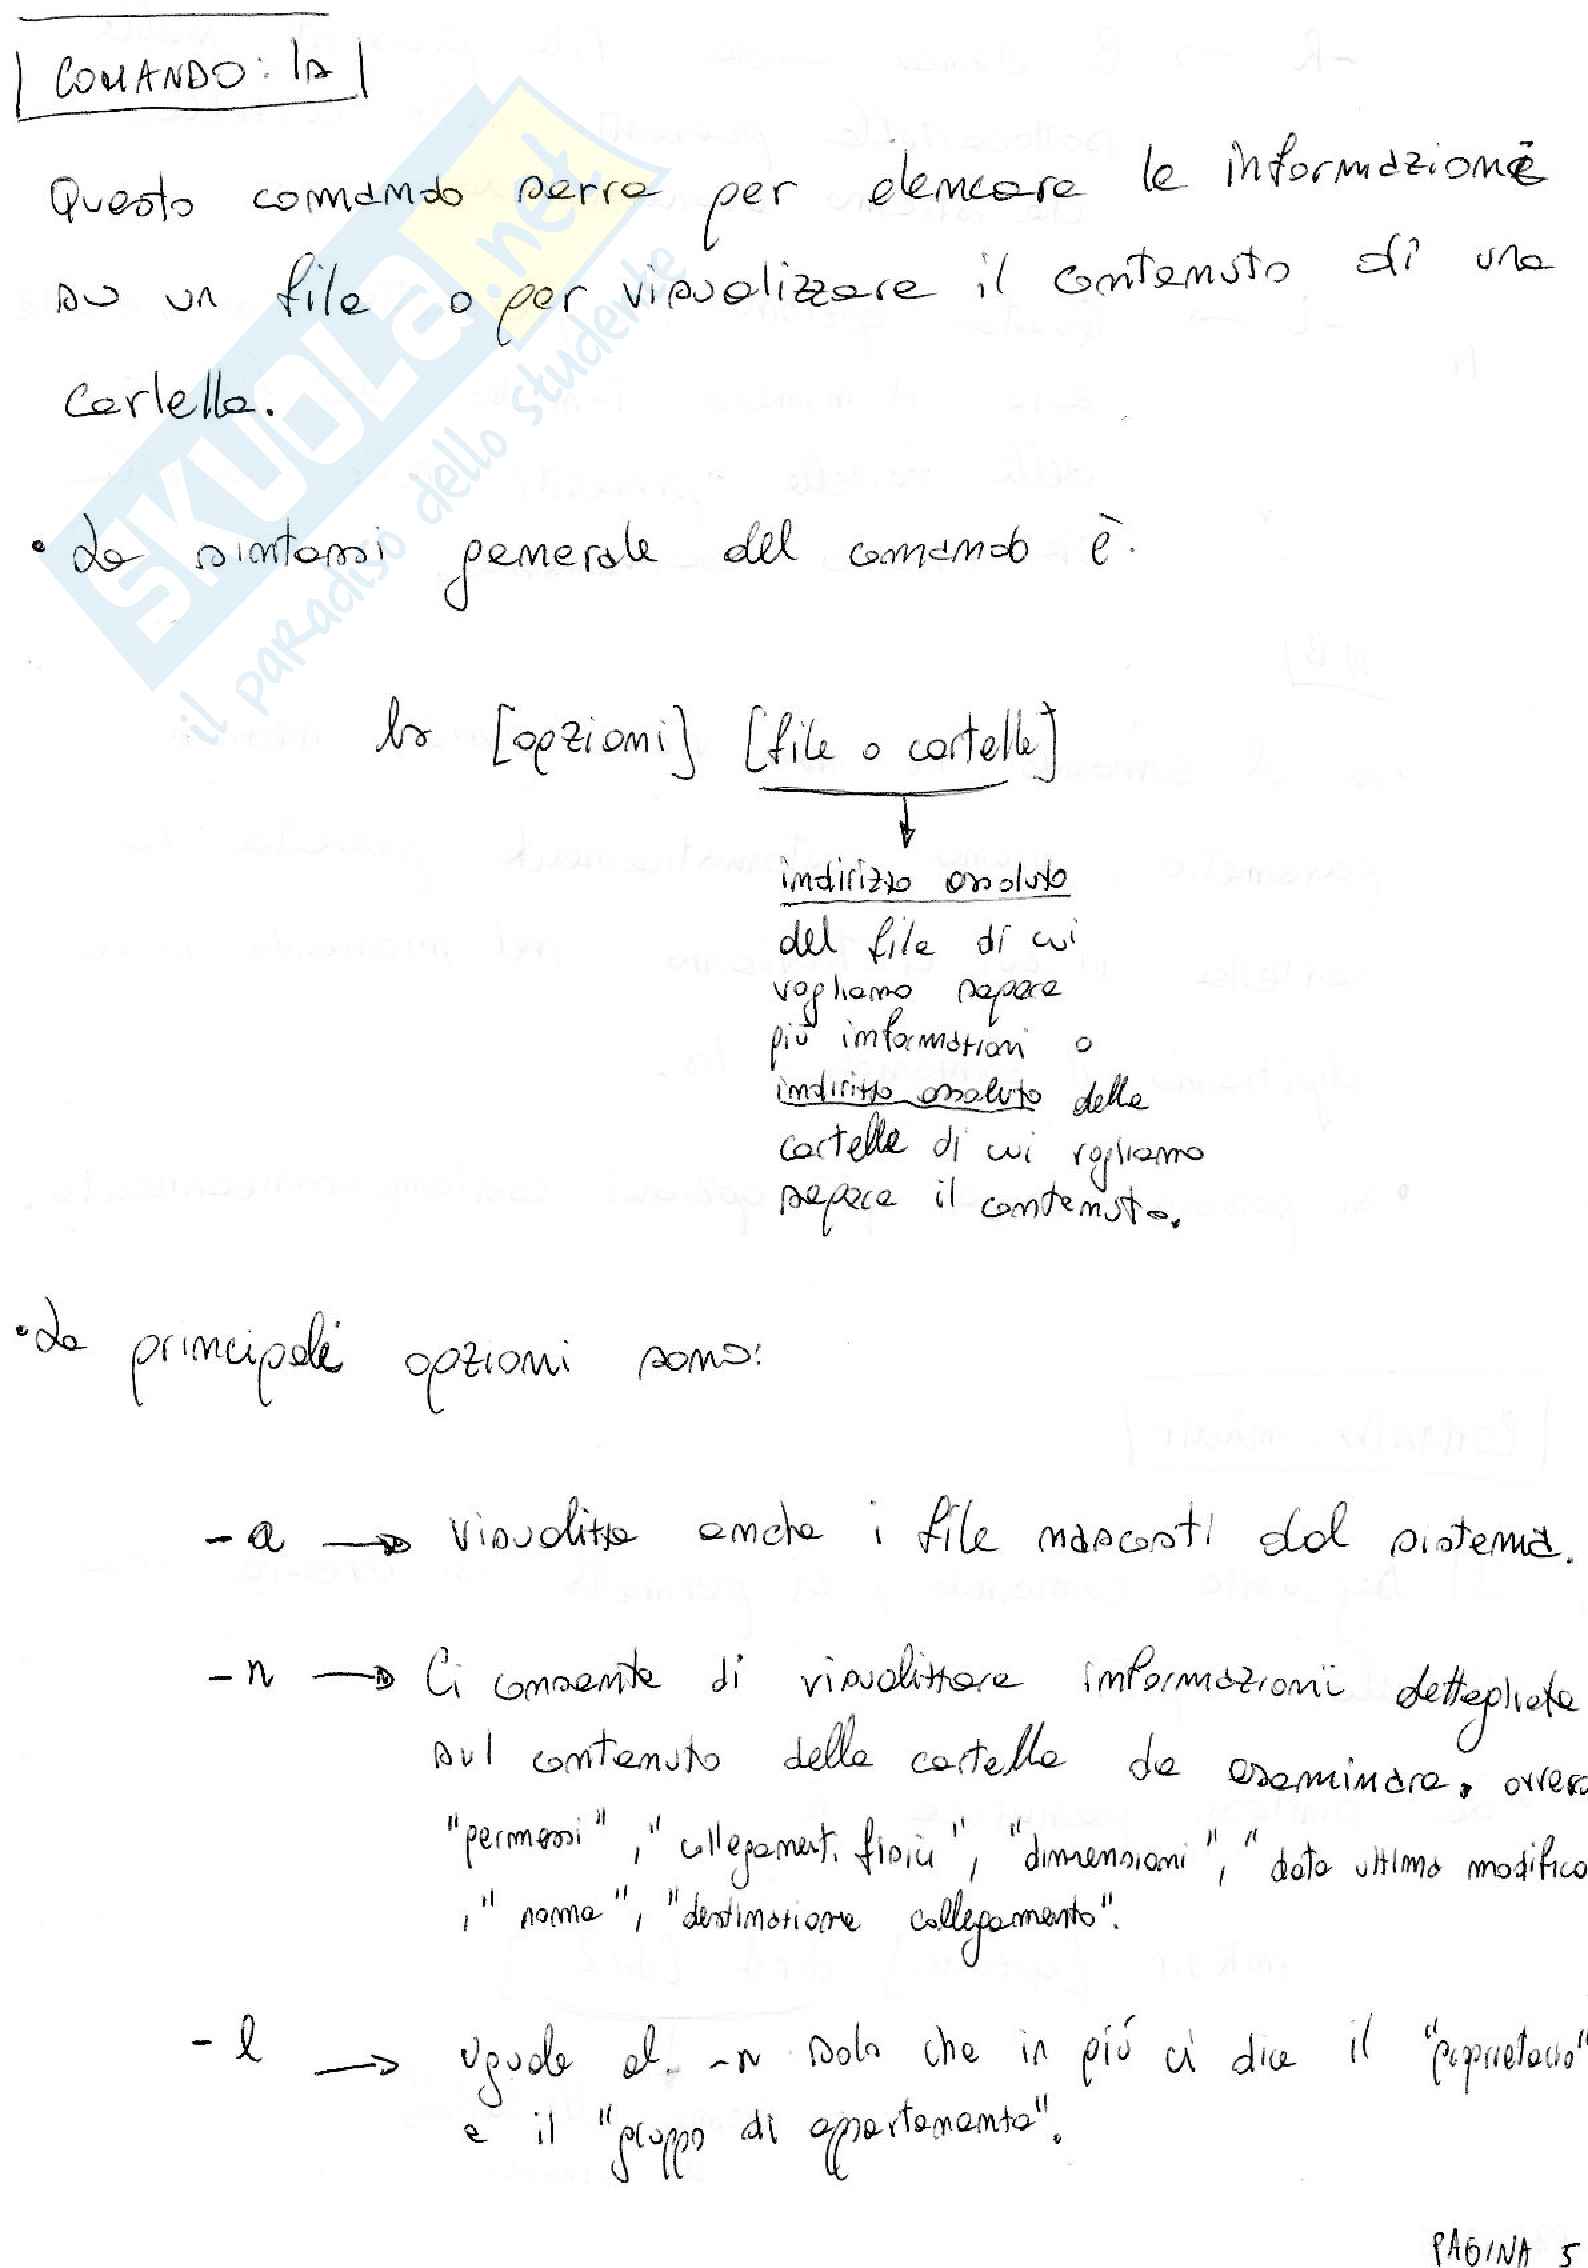 COMANDO: ls
Questo comando serve per elencare le informazione
su un file o per visualizzare il contenuto di una
cartella.
• La sintassi generale del comando è.
ls [opzioni] [file o cartelle]
indirizzo assoluto
del file di cui
vogliamo sapere
più informazioni o
indirizzo assoluto della
cartella di cui vogliamo
sapere il contenuto.
• Le principali opzioni sono:
- a → Visualizza anche i file nascosti dal sistema.
- n → Ci consente di visualizzare informazioni dettagliate
sul contenuto della cartella da esaminare, ovvero
"permessi", "collegamenti fisici", "dimensioni", "data ultima modifica
, "nome", "destinazione collegamento".
- l → Uguale al -n solo che in più ci dice il "proprietario"
e il "gruppo di appartamento".
PAGINA 5
SKUOLA.net
il paradiso dello studente